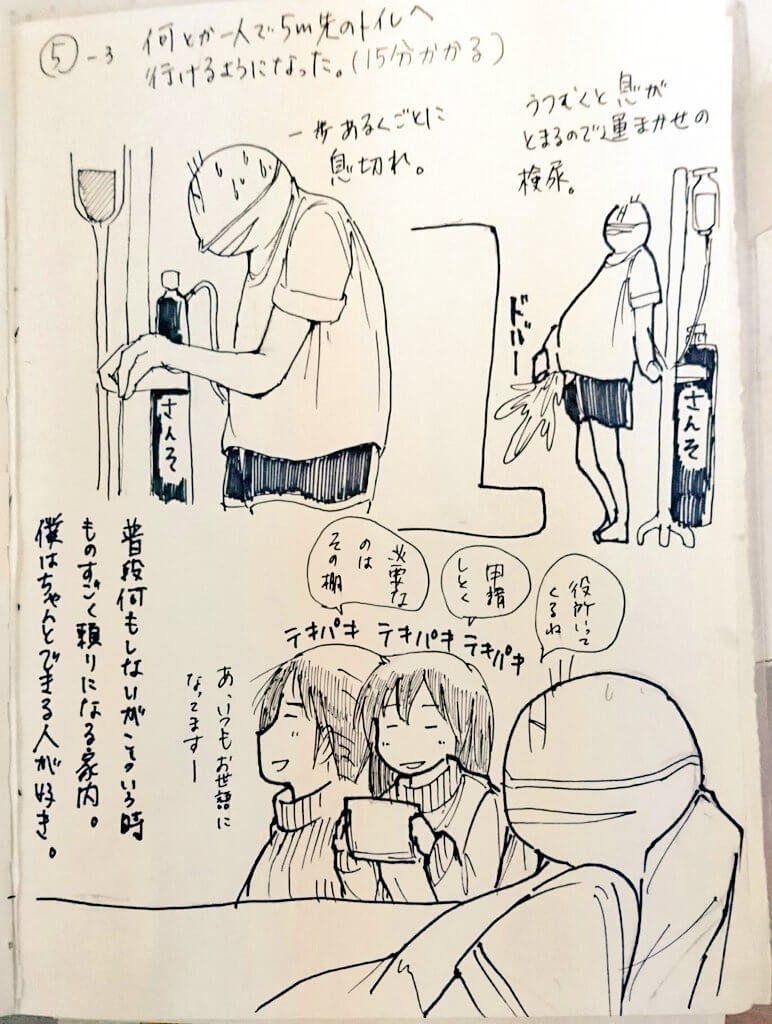 ⑤-3 何とか一人で5m先のトイレへ
行けるようになった。(15分かかる)
一歩あるくごとに
息切れ。
うつむくと息が
とまるので運まかせの
検尿。
さんそ
ドバー
さんそ
役所いって
くるね
申請
しとく
必要な
のは
その棚
テキパキ テキパキ テキパキ
あ、いつもお世話に
なってますー
普段何もしないがこういう時
ものすごく頼りになる家内。
僕はちゃんとできる人が好き。